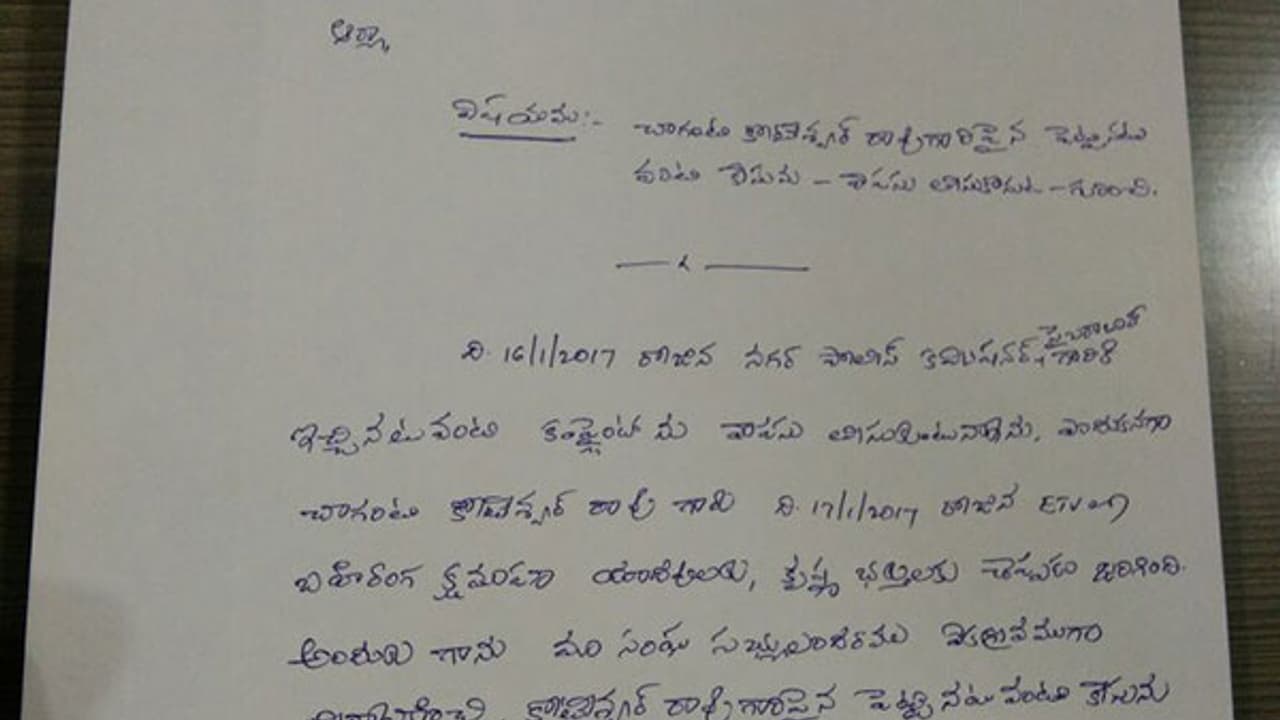 ఆర్యా,
విషయము:- చాగంటి కోటేశ్వర్ రావు గారిపైన పెట్టినటు
వంటి కేసును - వాపసు తీసుకొనుట - గూరించి.
ది. 16/1/2017 రోజున నగర్ పోలీస్ కమిషనర్, సైబరాబాద్ గారికి
ఇచ్చినటువంటి కంప్లైంట్ ను వాపసు తీసుకుంటున్నాను, ఎందుకనగా
చాగంటి కోటేశ్వర్ రావు గారు ది. 17/1/2017 రోజున ETV లో
బహిరంగ క్షమాపణ యాదవులకు, కృష్ణ భక్తులకు చెప్పడం జరిగింది.
అందుకు గాను మా సంఘ సభ్యులందరము ఏకగ్రీవముగా
కోటేశ్వర్ రావు గారిపైన పెట్టినటువంటి కేసును